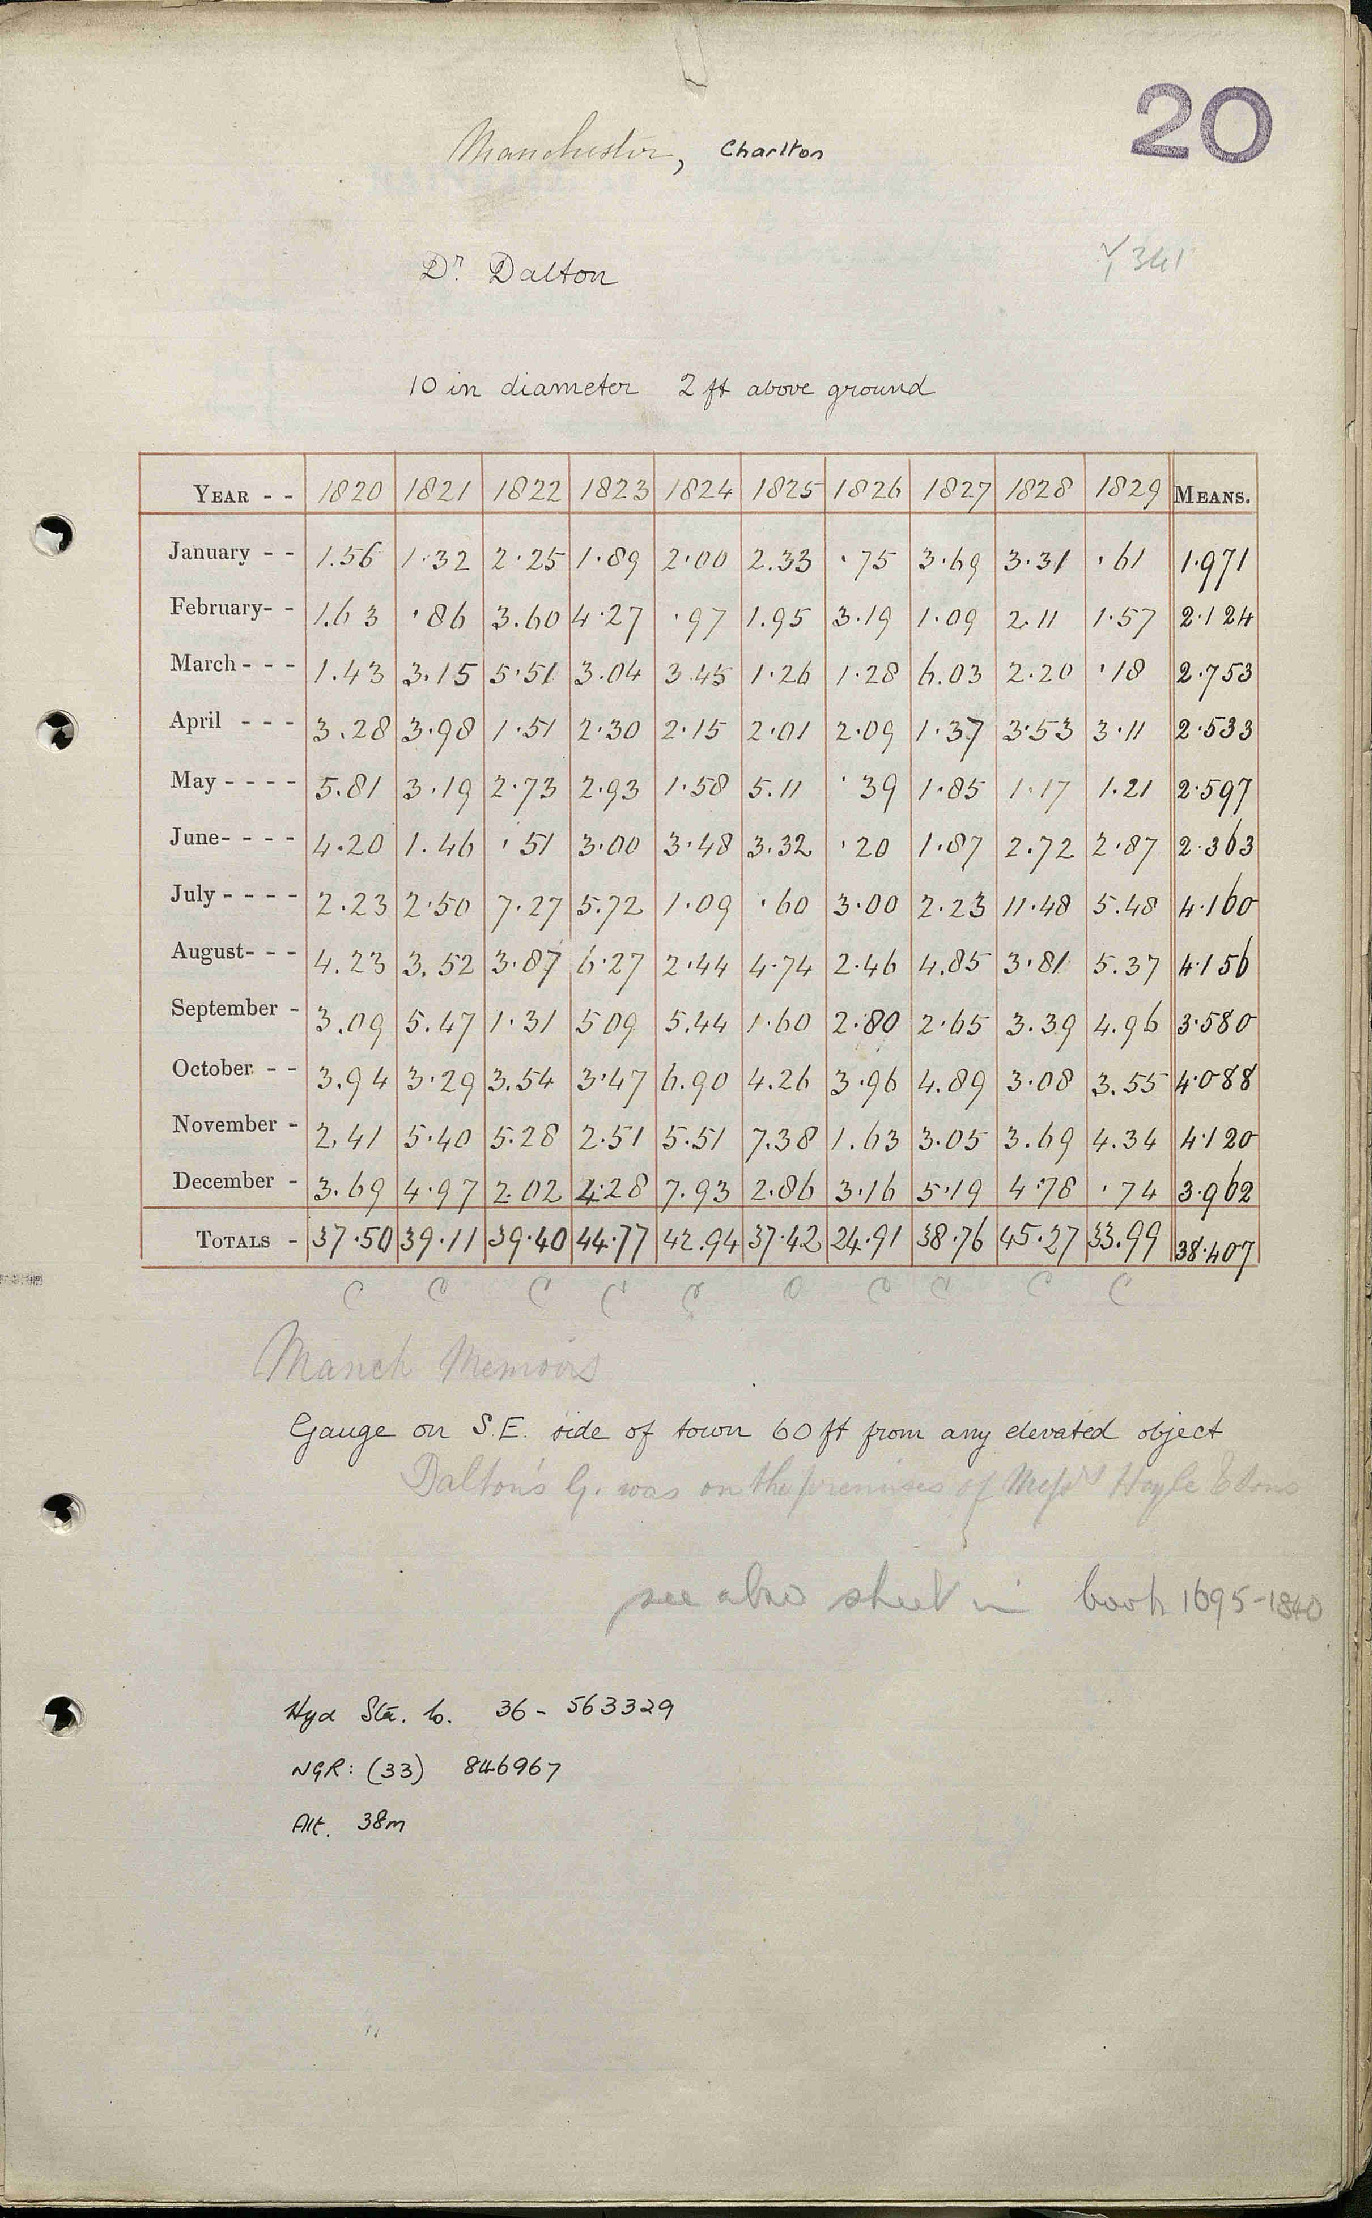 20
Manchester, Charlton
Dr. Dalton
341
10 in diameter 2 ft above ground
YEAR - - 1820 1821 1822 1823 1824 1825 1826 1827 1828 1829 MEANS.
January - - 1.56 1.32 2.25 1.89 2.00 2.33 .75 3.69 3.31 .61 1.971
February- - 1.63 .86 3.60 4.27 .97 1.95 3.19 1.09 2.11 1.57 2.124
March - - - 1.43 3.15 5.51 3.04 3.45 1.26 1.28 6.03 2.20 .18 2.753
April - - - 3.28 3.98 1.51 2.30 2.15 2.01 2.09 1.37 3.53 3.11 2.533
May - - - - 5.81 3.19 2.73 2.93 1.58 5.11 .39 1.85 1.17 1.21 2.597
June- - - - 4.20 1.46 .51 3.00 3.48 3.32 .20 1.87 2.72 2.87 2.363
July - - - - 2.23 2.50 7.27 5.72 1.09 .60 3.00 2.23 11.48 5.48 4.160
August- - - 4.23 3.52 3.87 6.27 2.44 4.74 2.46 4.85 3.81 5.37 4.156
September - 3.09 5.47 1.31 5 09 5.44 1.60 2.80 2.65 3.39 4.96 3.580
October - - 3.94 3.29 3.54 3.47 6.90 4.26 3.96 4.89 3.08 3.55 4.088
November - 2.41 5.40 5.28 2.51 5.51 7.38 1.63 3.05 3.69 4.34 4.120
December - 3.69 4.97 2.02 4.28 7.93 2.86 3.16 5.19 4.78 .74 3.962
TOTALS - 37.50 39.11 39.40 44.77 42.94 37.42 24.91 38.76 45.27 33.99 38.407
C C C C C C C C C C
Manch Memoirs
Gauge on S.E. side of town 60 ft from any elevated object
Dalton's G. was on the premises of Messrs Hoyle & Sons
see also sheet in book 1695-1840
Hyd Sta. 6. 36 - 563329
NGR: (33) 846967
Alt. 38m